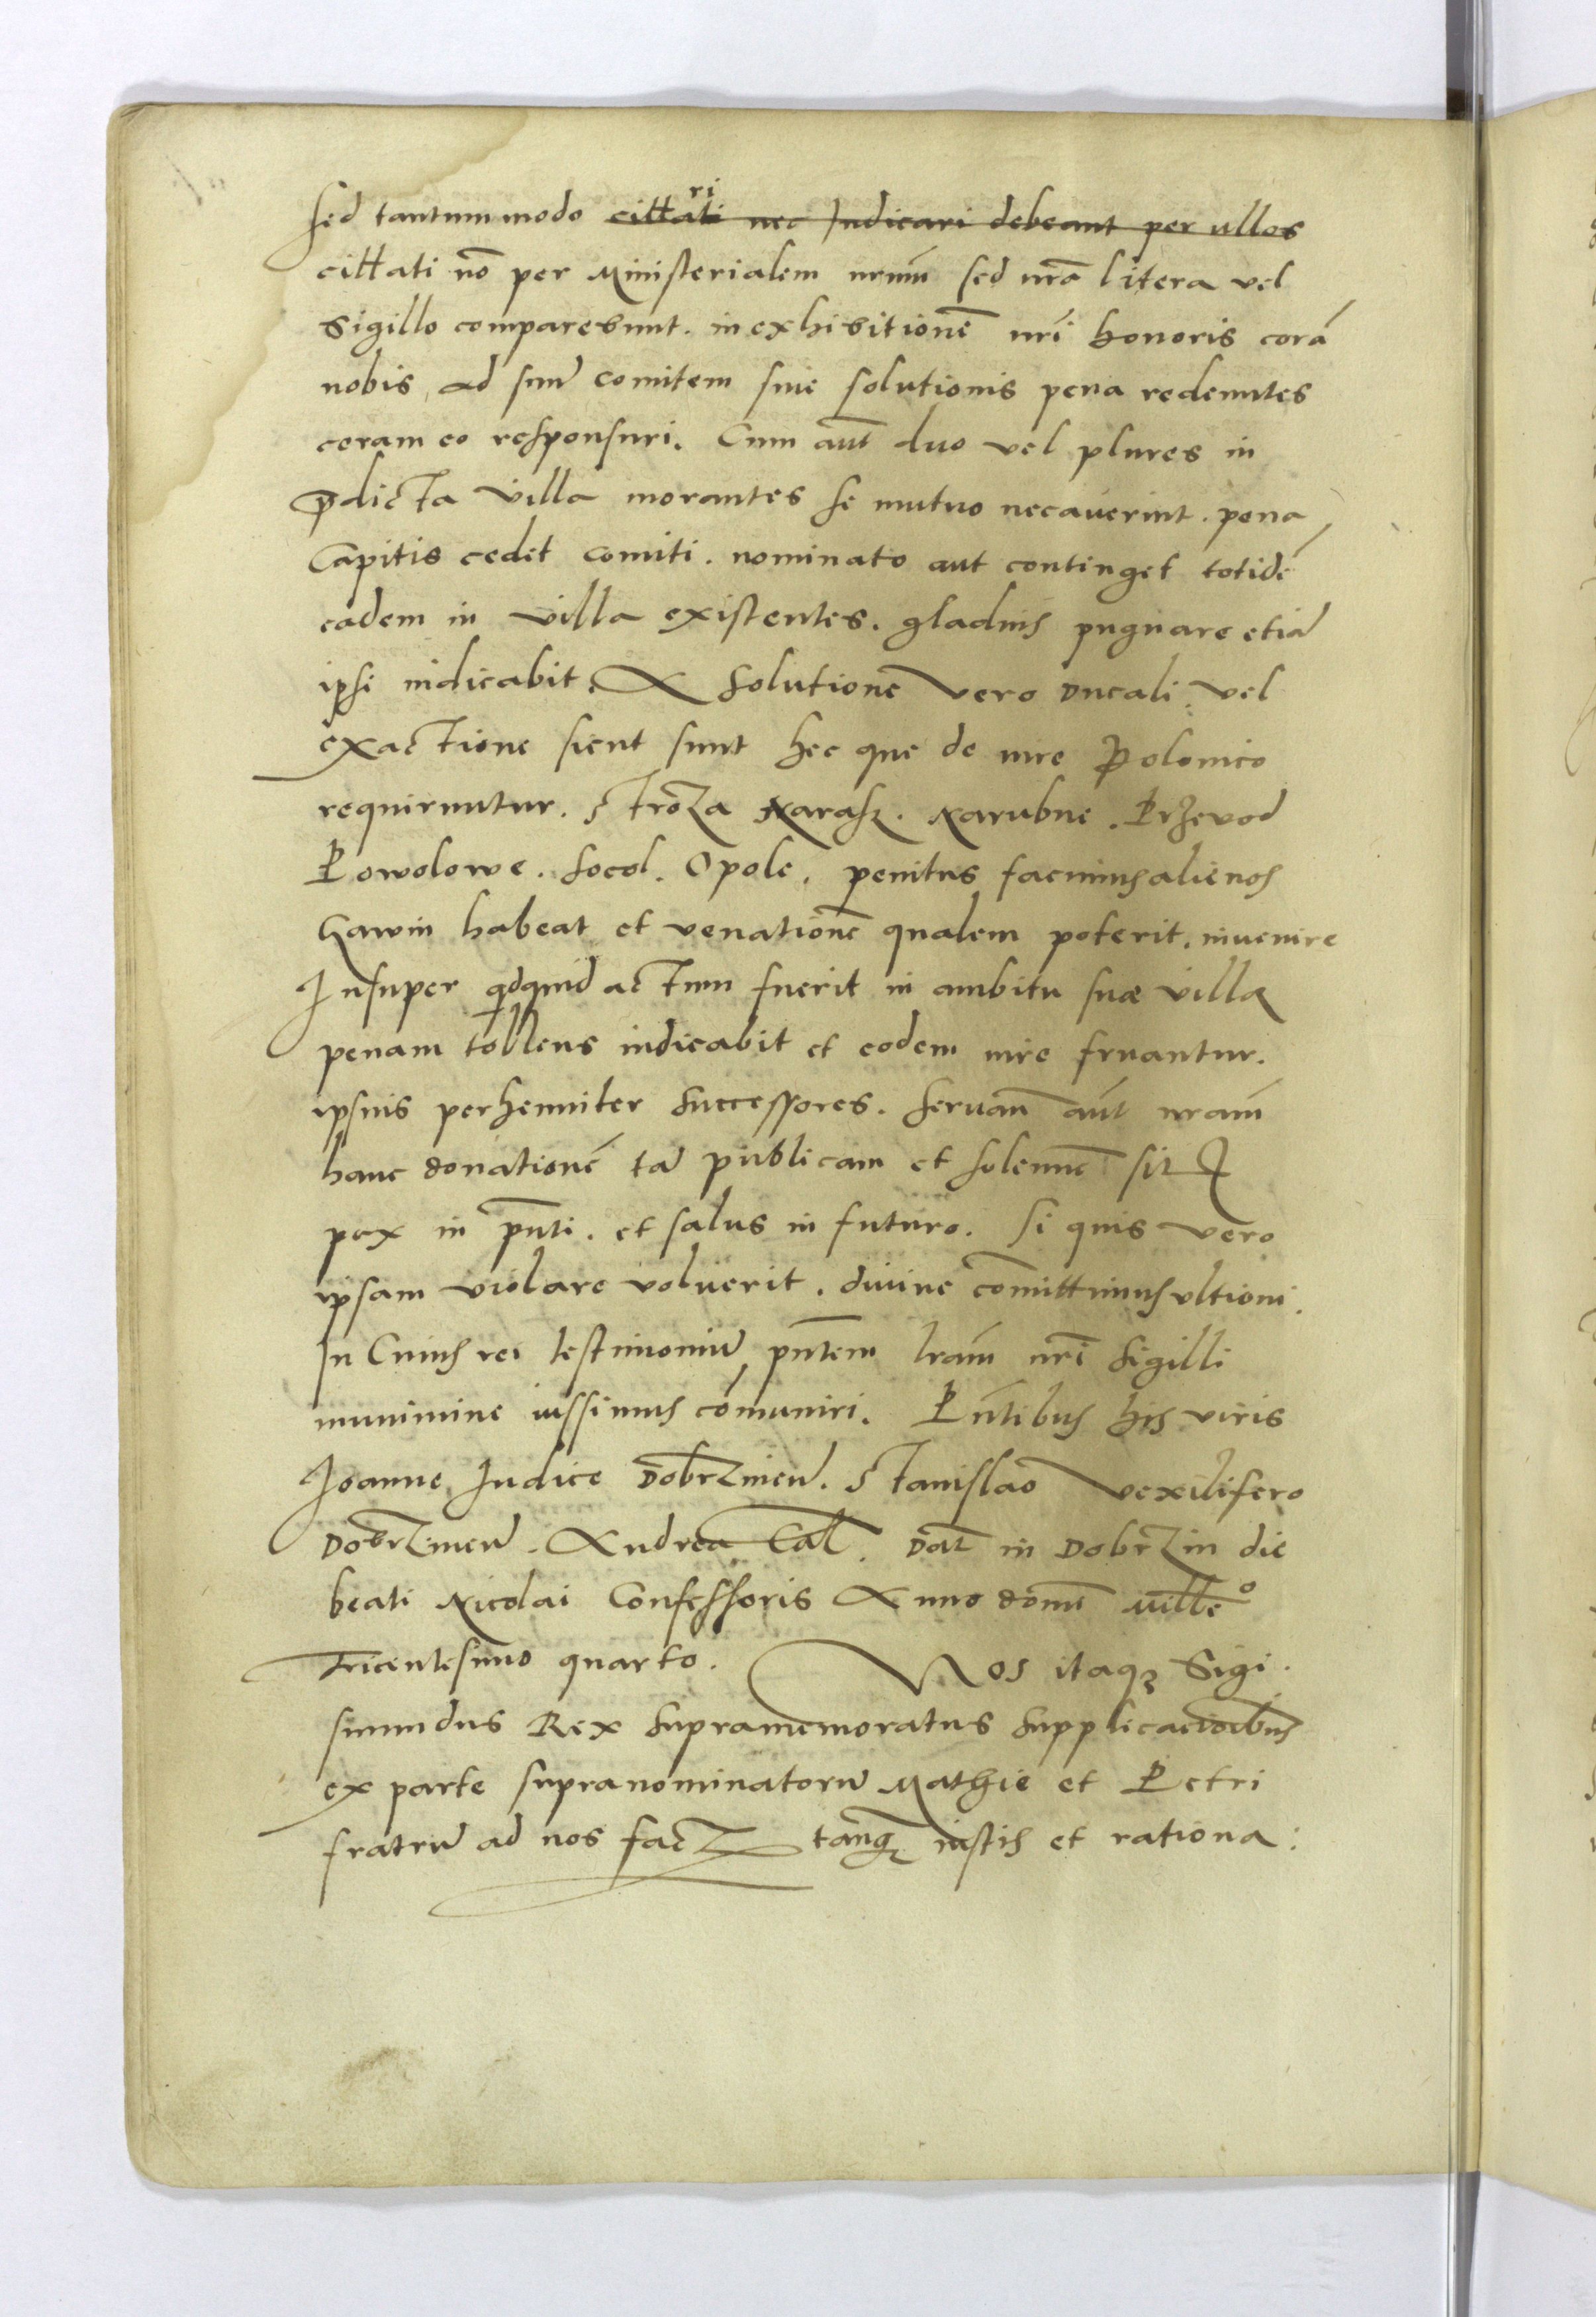 sed tantummodo cittati ri nec Iudicari debeant per ullos
cittati nō per Ministerialem nrum̄ sed nrā litera vel
Sigillo comparebunt. in exhibitionē nrī honoris corā
nobis, ad suū comitem sine solutionis pena redeuntes
coram eo responsuri. Cum aūt duo vel plures in
p̄dicta villa morantes se mutuo necaverint. pena
Capitis cedet comiti. nominato aut continget totidē
eadem in villa existentes. gladiis pugnare etiā
ipsi iudicabit. A Solutione vero Ducali. vel
exactione sicut sunt hec que de iure Polonico
requiruntur. Stroza Narasz. Narubne. Przevod
Powolowe. Socol. Opole. penitus facimus alienos
Gawin habeat et venationē qualem poterit. invenire
Insuper qdquid actum fuerit in ambitu suæ villæ
penam tollens iudicabit et eodem iure fruantur.
ipsius perhenniter Successores. Servan̄ aūt nram̄
hanc donationē tā publicam et solennē sit
pax in pn̄ti. et salus in futuro. Si quis vero
ipsam violare voluerit. divine com̄ittimus ultioni.
In Cuius rei testimoniū pn̄tem lram̄ nrī Sigilli
munimine iussimus cōmuniri. Pn̄tibus his viris
Joanne Iudice Dobrzineñ. Stanislao vexilifero
Dobrzineñ. Andrea Cal. Dat̄ in Dobrzin die
beati Nicolai Confessoris Anno domī mille͞o
tricentesimo quarto. Nos itaqꝫ Sigi.
smundus Rex supramemoratus supplicacioībus
ex parte supranominatorū Mathie et Petri
fratrū ad nos fact tanqꝫ iustis et rationa: